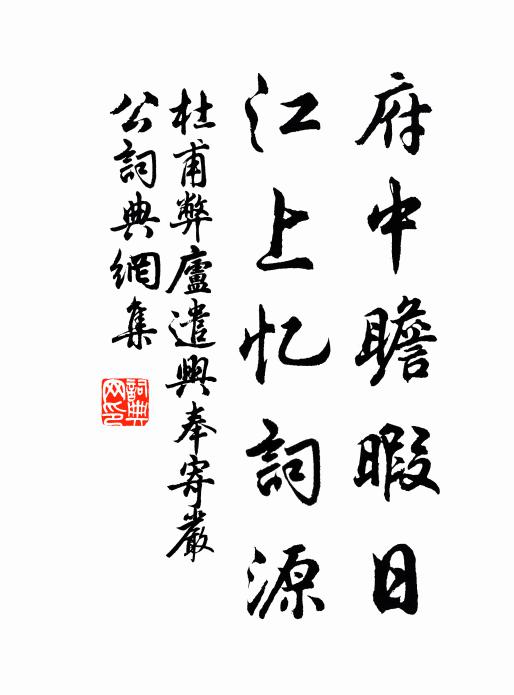 府中瞻暇日
江上忆詞源
杜甫弊廬遣興奉寄嚴
公詞典網集
詞典
网印